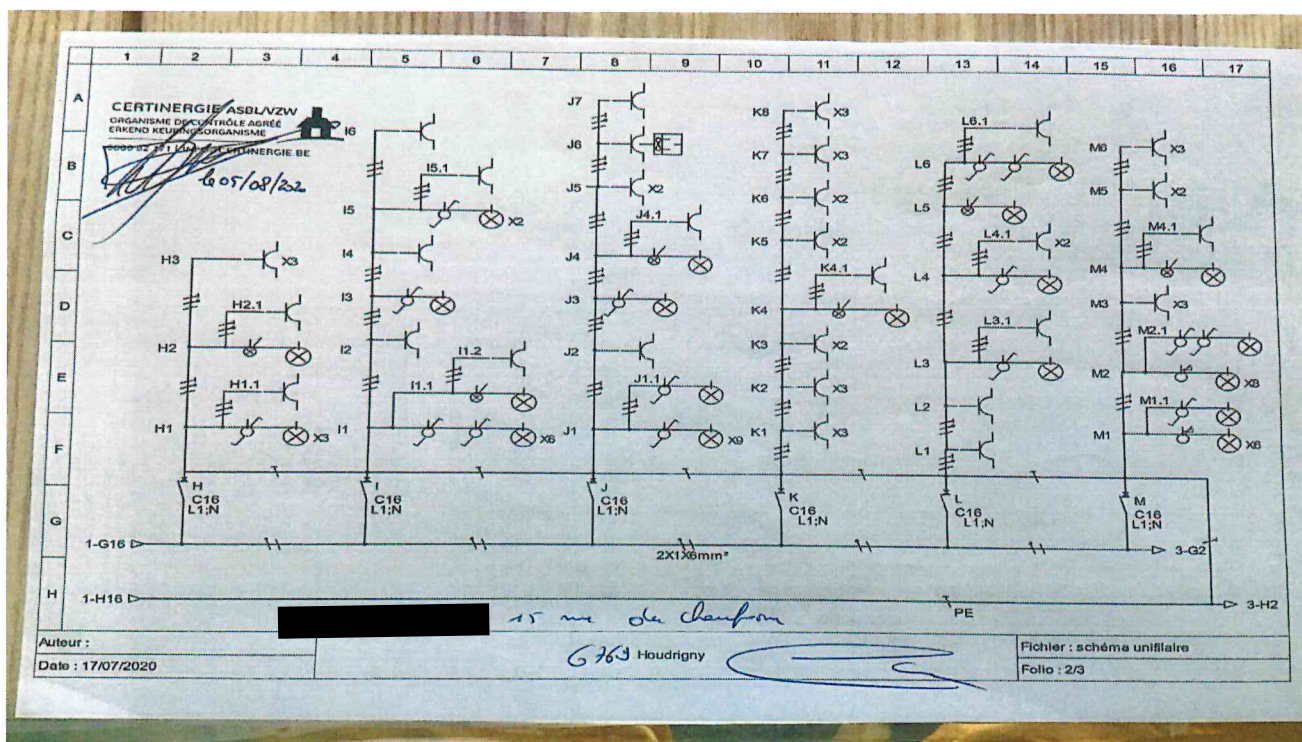 1 2 3 4 5 6 7 8 9 10 11 12 13 14 15 16 17
A
B
C
D
E
F
G
H
CERTINERGIE ASBL/VZW
ORGANISME DE CONTRÔLE AGRÉÉ
ERKEND KEURINGSORGANISME
CERTINERGIE.BE
05/08/202
H3 X3
H2.1
H2
H1.1
H1 X3
H
C16
L1;N
I6
I5.1
I5 X2
I4
I3
I2
I1.2
I1.1
I1 X6
I
C16
L1;N
J7
J6
J5 X2
J4.1
J4
J3
J2
J1.1
J1 X9
J
C16
L1;N
K8 X3
K7 X3
K6 X2
K5 X2
K4.1
K4
K3 X2
K2 X3
K1 X3
K
C16
L1;N
L6.1
L6
L5
L4.1 X2
L4
L3.1
L3
L2
L1
L
C16
L1;N
M6 X3
M5 X2
M4.1
M4
M3 X3
M2.1
M2 X8
M1.1
M1 X6
M
C16
L1;N
1-G16 2X1X6mm² 3-G2
1-H16 PE 3-H2
15 rue du
Auteur :
Date : 17/07/2020
6769 Houdrigny
Fichier : schéma unifilaire
Folio : 2/3